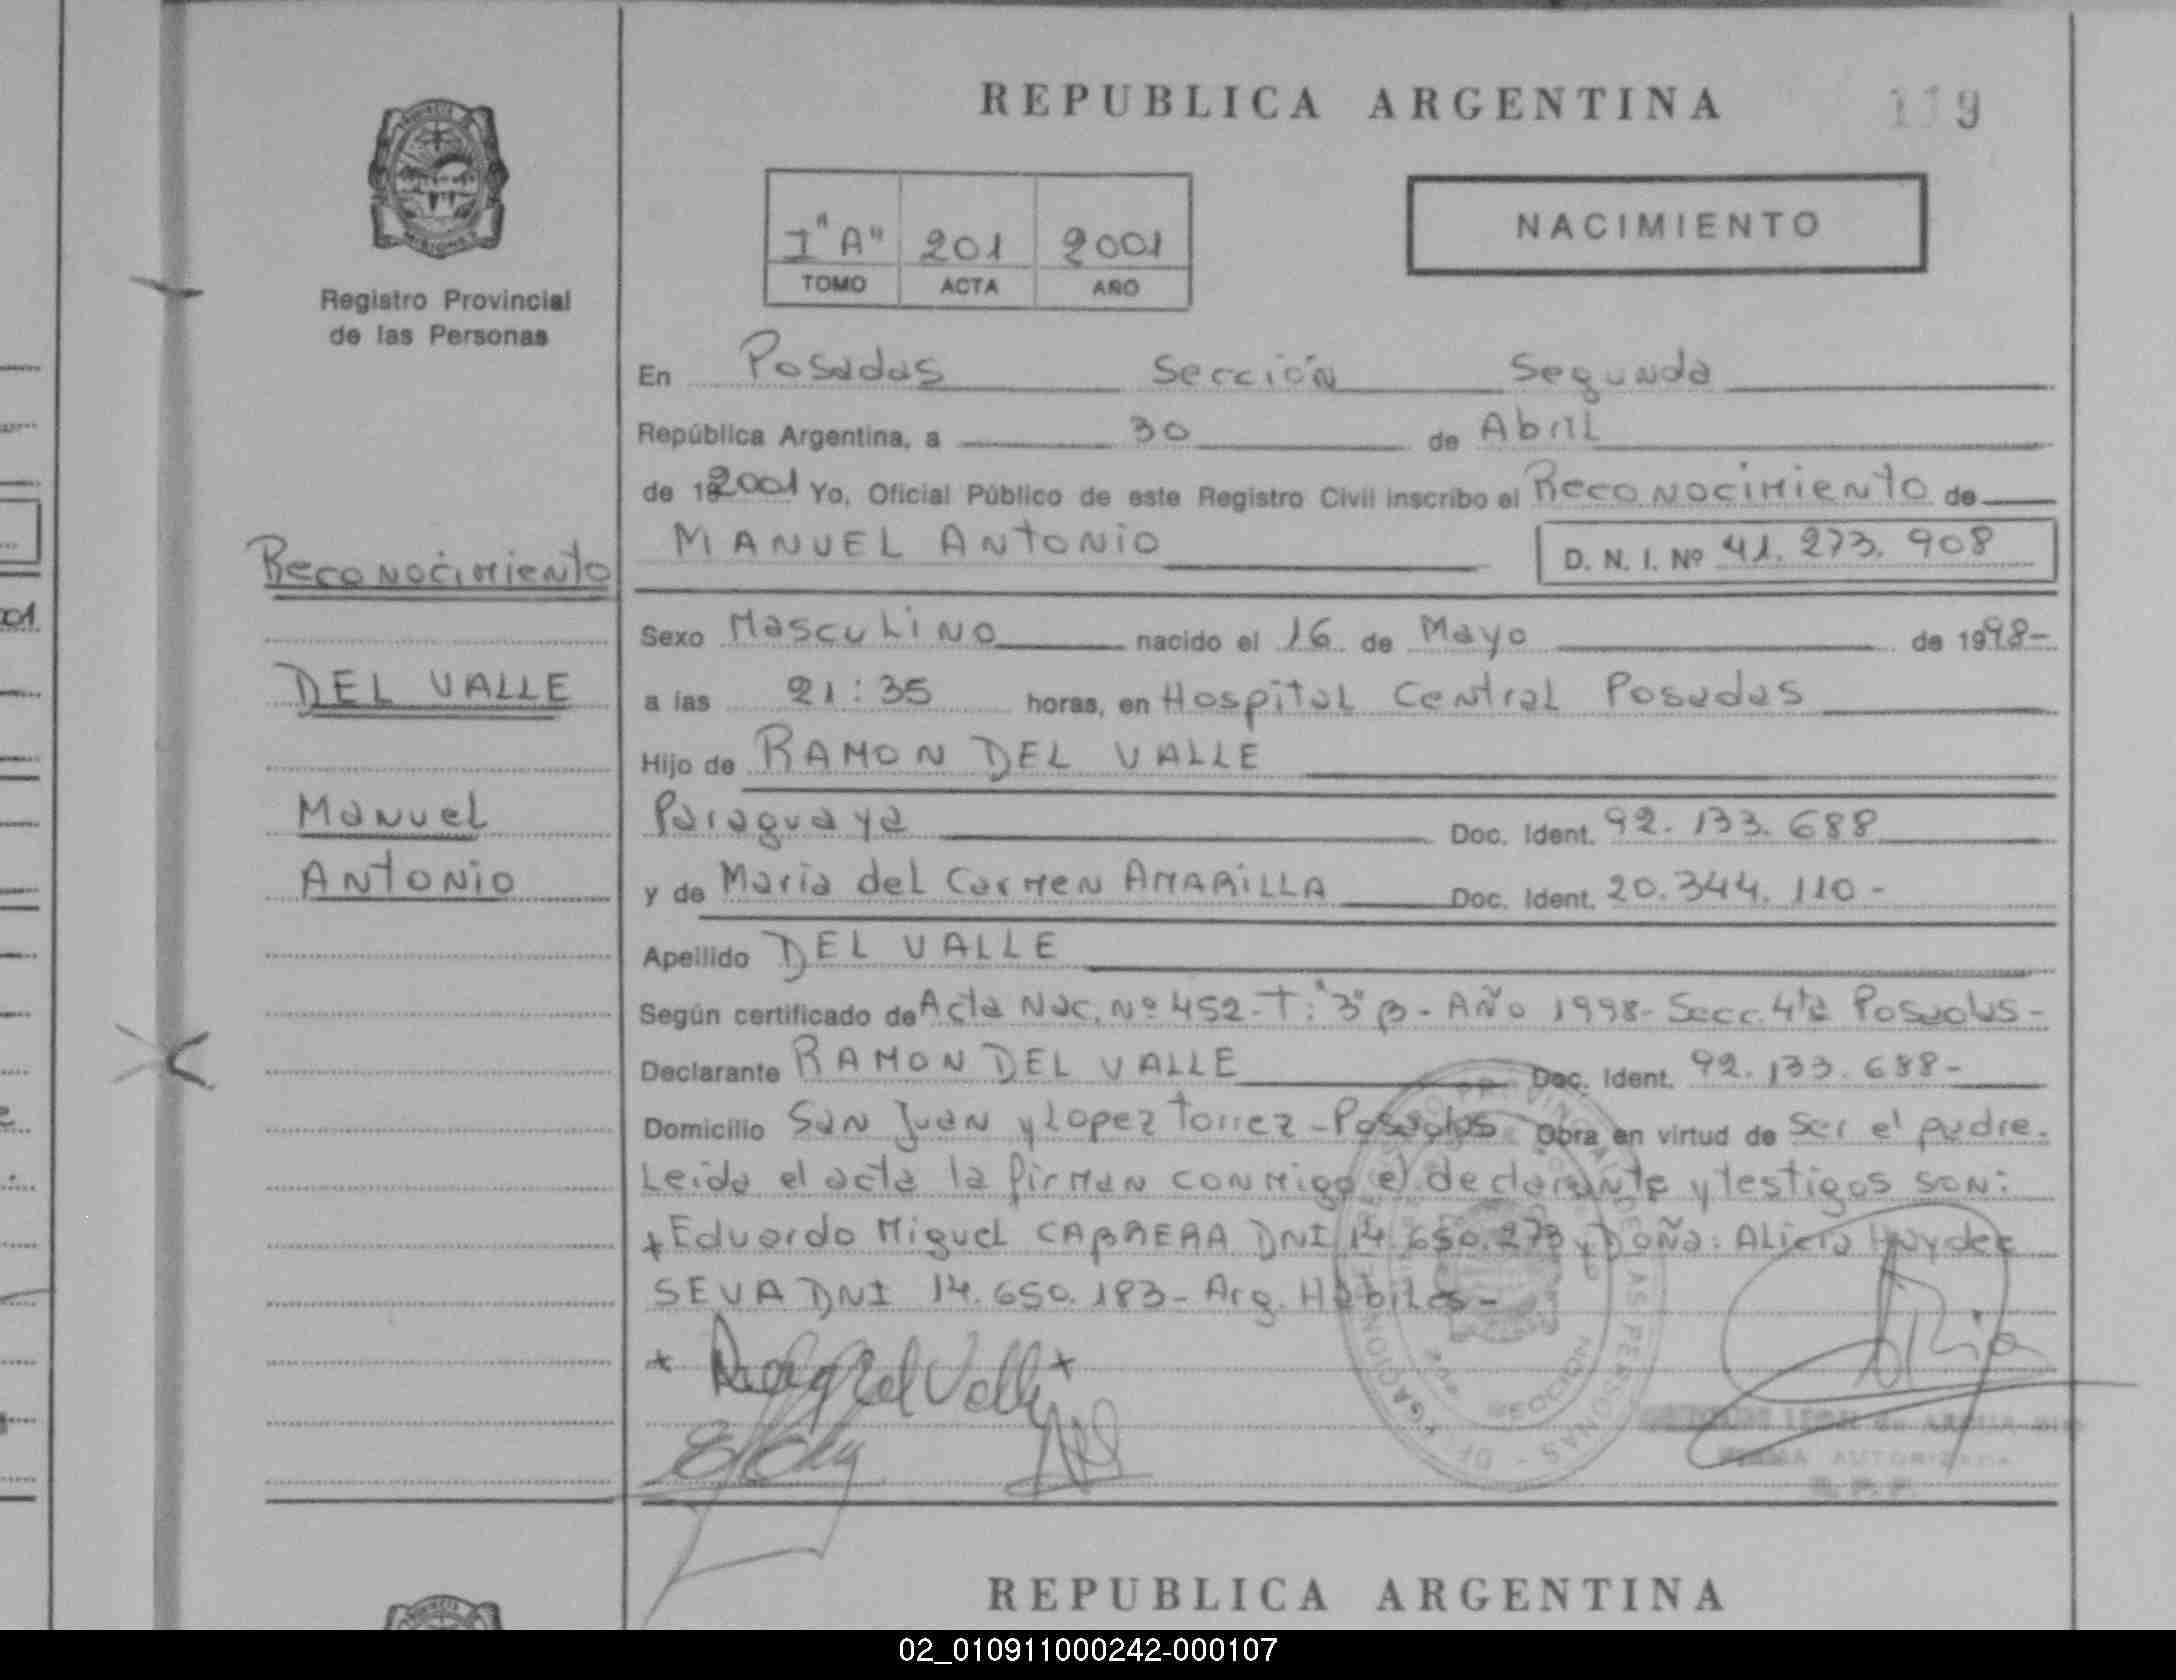 REPUBLICA ARGENTINA
119
NACIMIENTO
I "A" 201 2001
TOMO ACTA AÑO
Registro Provincial
de las Personas
En Posadas Sección Segunda
República Argentina, a 30 de Abril
de 192001 Yo, Oficial Público de este Registro Civil inscribo el Reconocimiento de
MANUEL ANTONIO D. N. I. Nº 41.273.908
Reconocimiento
DEL VALLE
Manuel
Antonio
Sexo Masculino nacido el 16 de Mayo de 1998-
a las 21:35 horas, en Hospital Central Posadas
Hijo de RAMON DEL VALLE
Paraguaya Doc. Ident. 92.133.688
y de Maria del Carmen AMARILLA Doc. Ident. 20.344.110-
Apellido DEL VALLE
Según certificado de Acta Nac. Nº 452-T:"3" B- Año 1998- Secc. 4ta Posadas-
Declarante RAMON DEL VALLE Doc. Ident. 92.133.688-
Domicilio San Juan y Lopez Torrez - Posadas Obra en virtud de ser el padre.
Leida el acta la firman conmigo el declarante y testigos son:
+Eduardo Miguel CABRERA DNI 14.650.273 y Doña: Alicia Haydee
SEVA DNI 14.650.183- Arg. Habiles-
REPUBLICA ARGENTINA
02_010911000242-000107